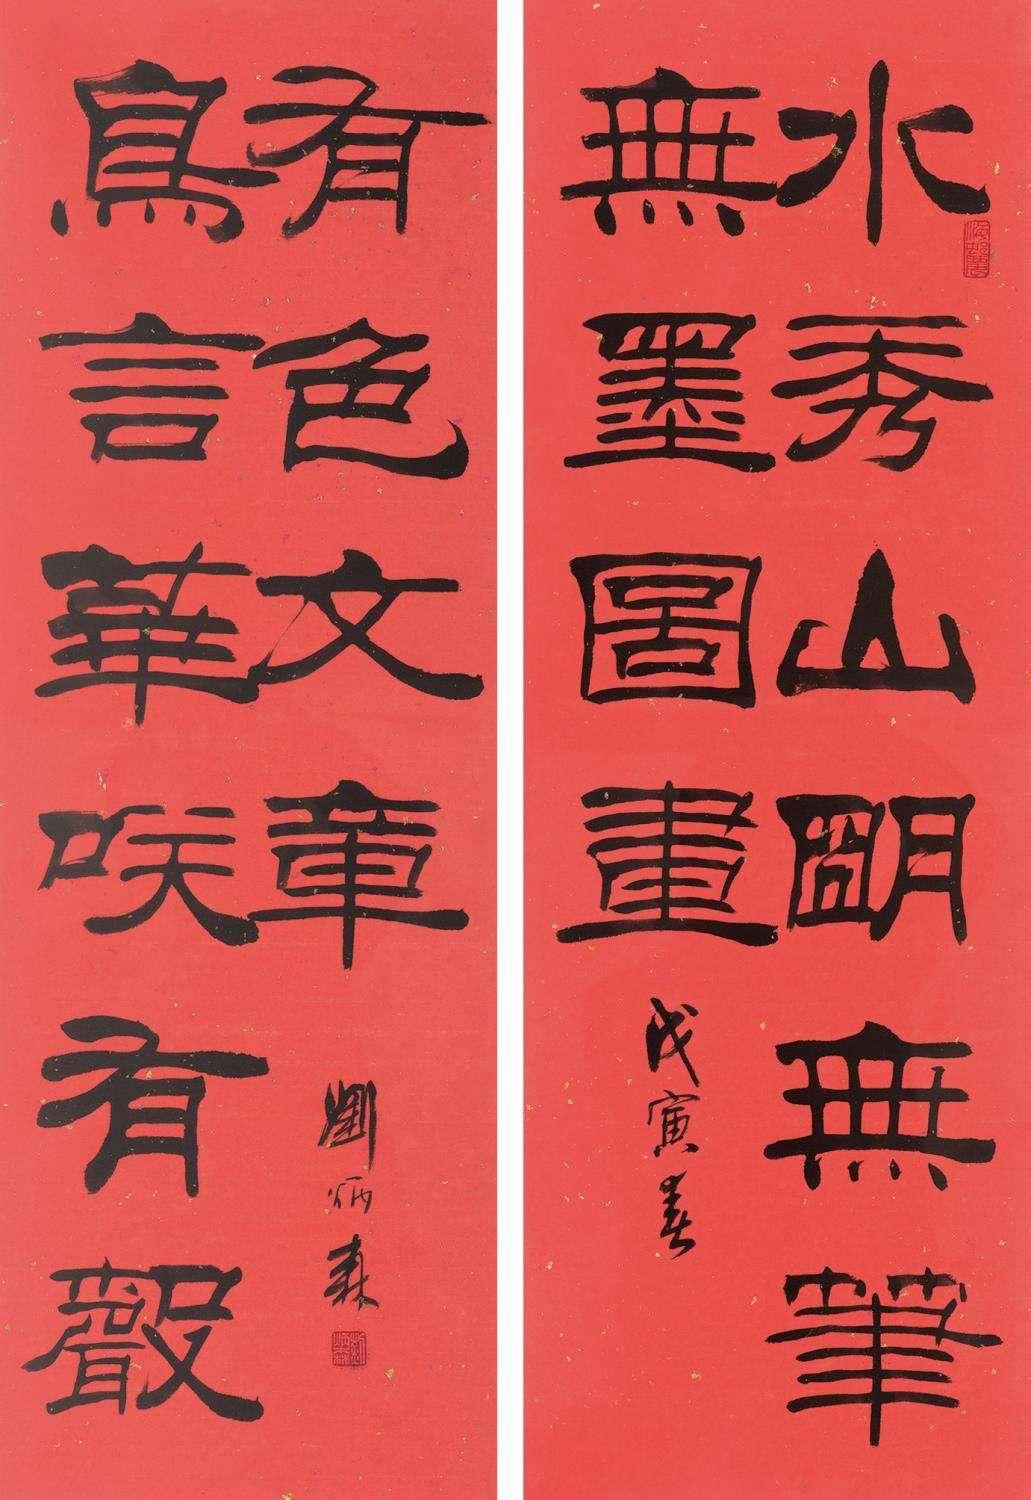 水秀山明無筆
無墨圖畫
戊寅春
鳥言華咲有聲
有色文章
劉炳森